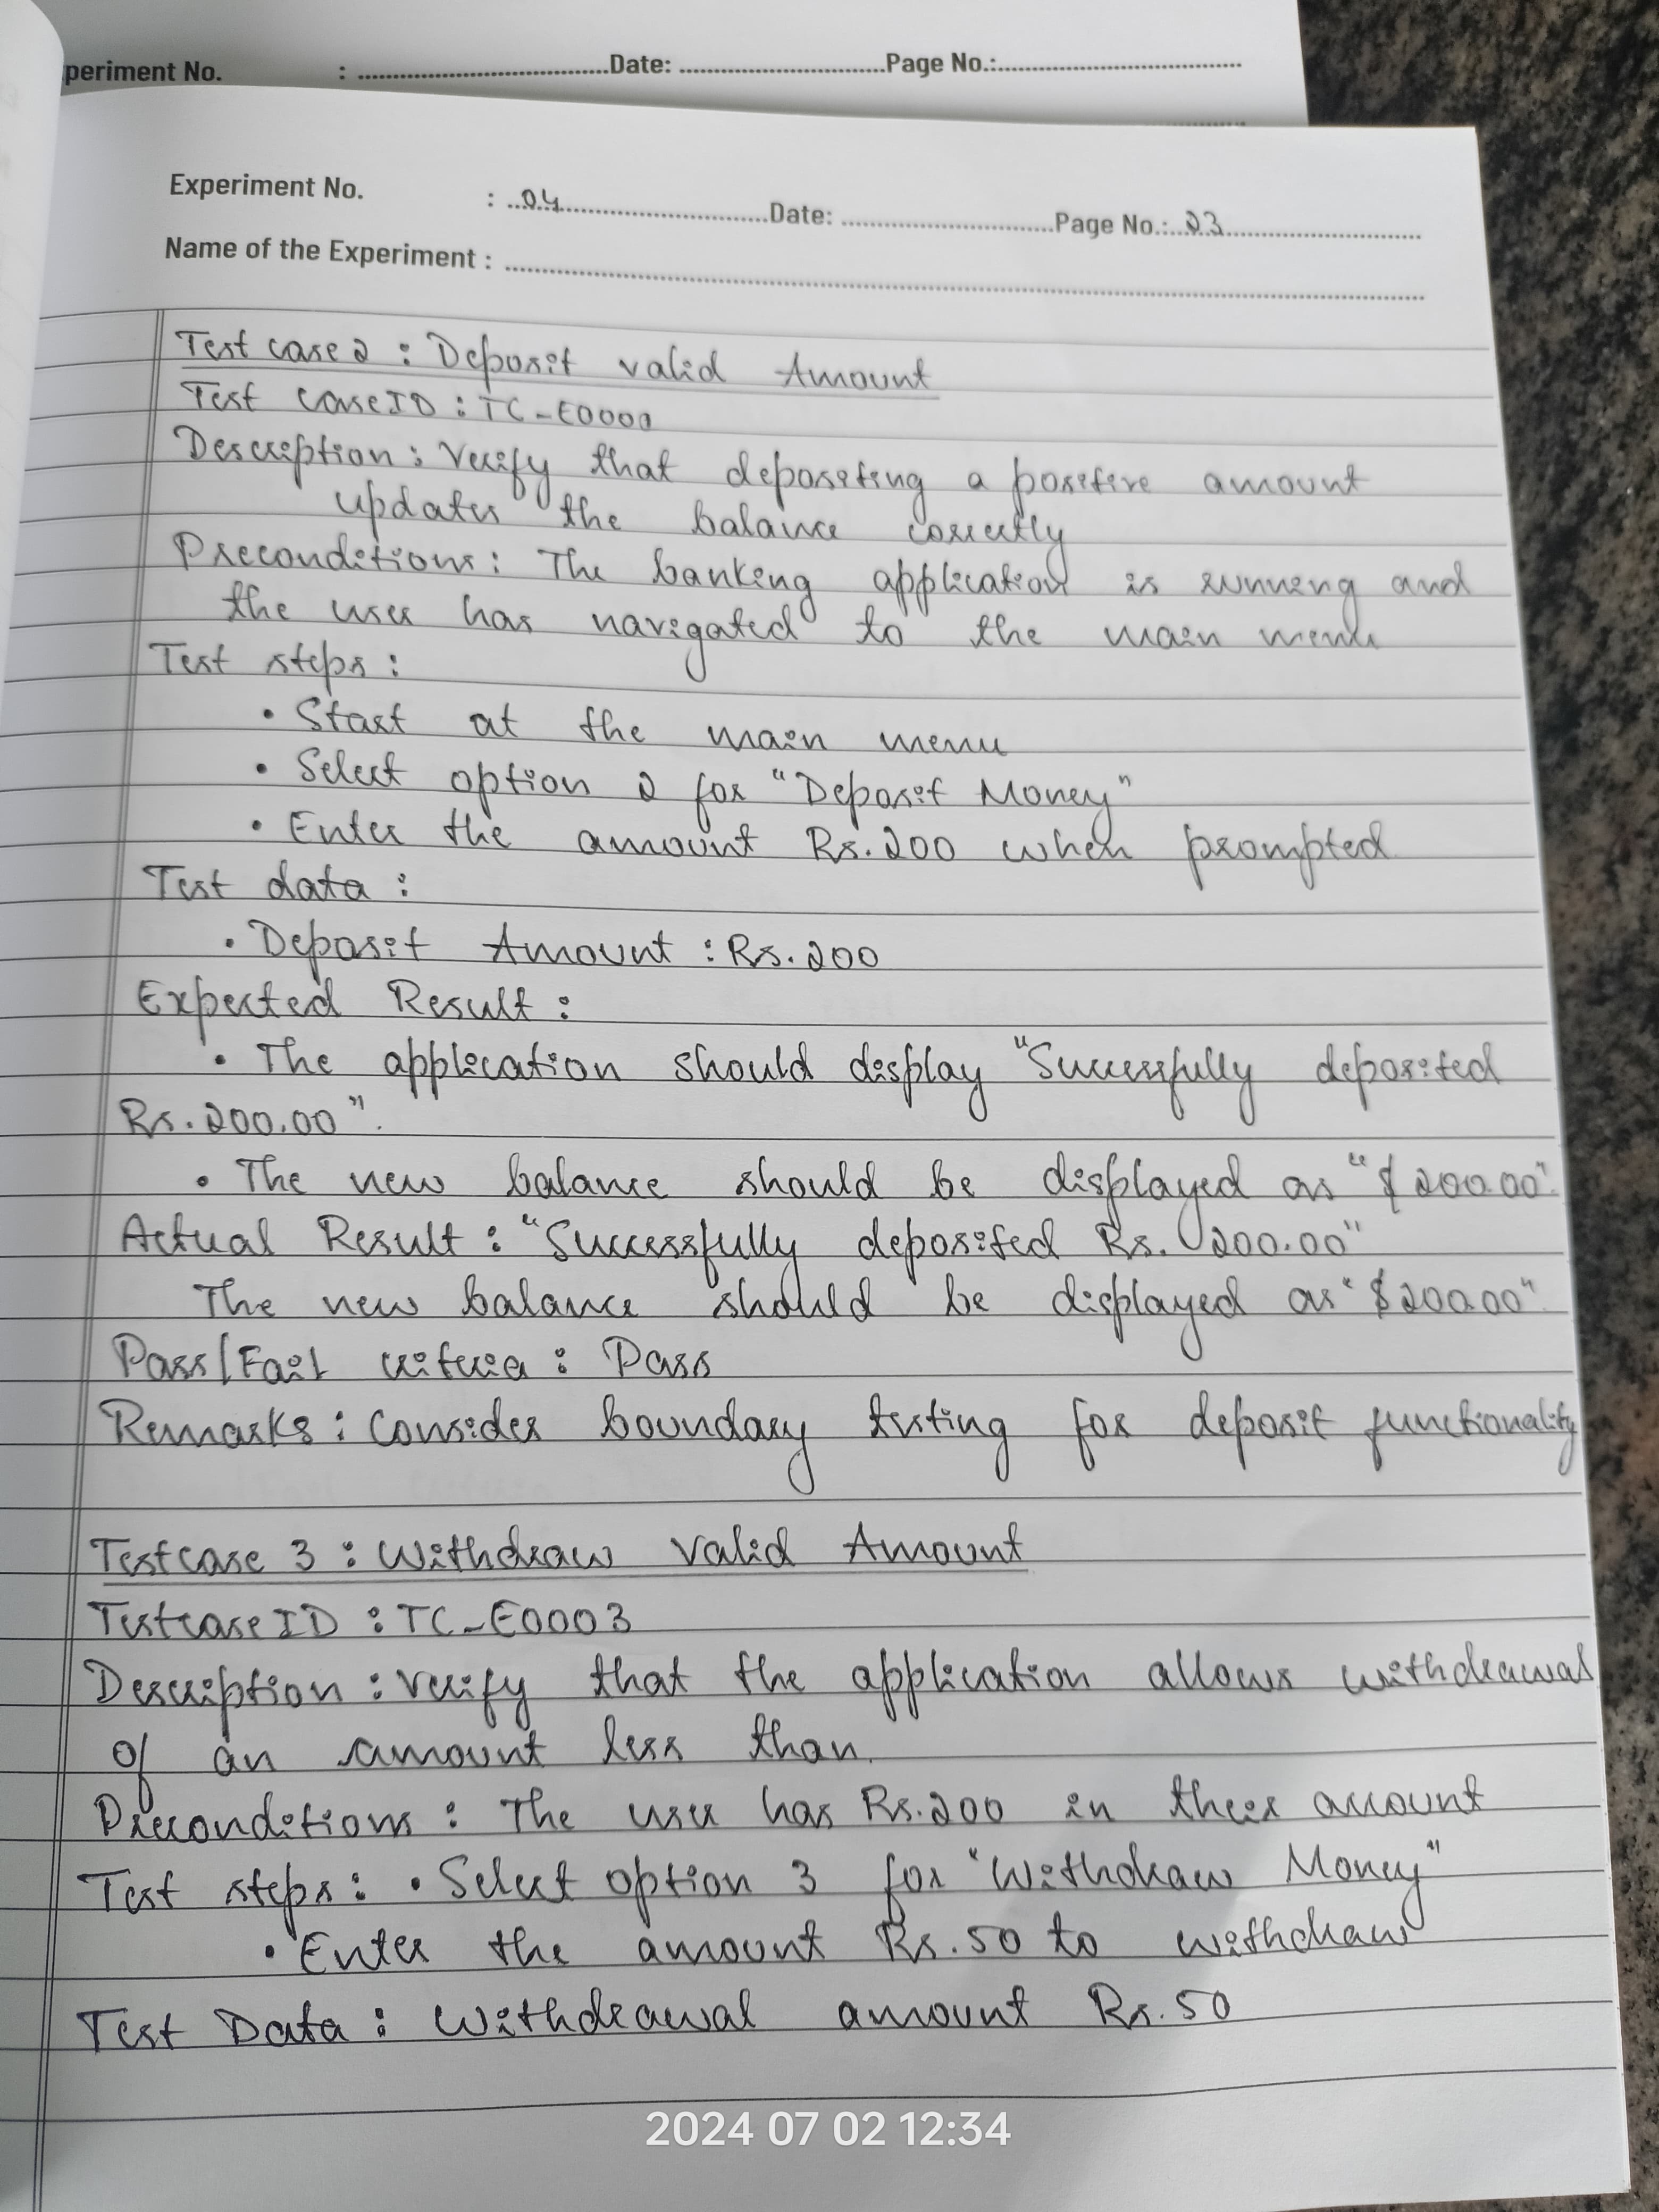 periment No. : Date: Page No.:
Experiment No. : 04 Date: Page No.: 23
Name of the Experiment :
Test case 2 : Deposit valid Amount
Test case ID : TC-E0002
Description : Verify that depositing a positive amount
updates the balance correctly
Preconditions : The banking application is running and
the user has navigated to the main menu
Test steps :
• Start at the main menu
• Select option 2 for "Deposit Money"
• Enter the amount Rs.200 when prompted
Test data :
• Deposit Amount : Rs.200
Expected Result :
• The application should display "Successfully deposited
Rs.200.00".
• The new balance should be displayed as "$200.00".
Actual Result : "Successfully deposited Rs. 200.00"
The new balance should be displayed as "$200.00".
Pass/Fail criteria : Pass
Remarks : Consider boundary testing for deposit functionality
Testcase 3 : Withdraw Valid Amount
Testcase ID : TC-E0003
Description : Verify that the application allows withdrawal
of an amount less than.
Preconditions : The user has Rs.200 in their account
Test steps : • Select option 3 for "Withdraw Money"
• Enter the amount Rs.50 to withdraw
Test Data : Withdrawal amount Rs.50
2024 07 02 12:34